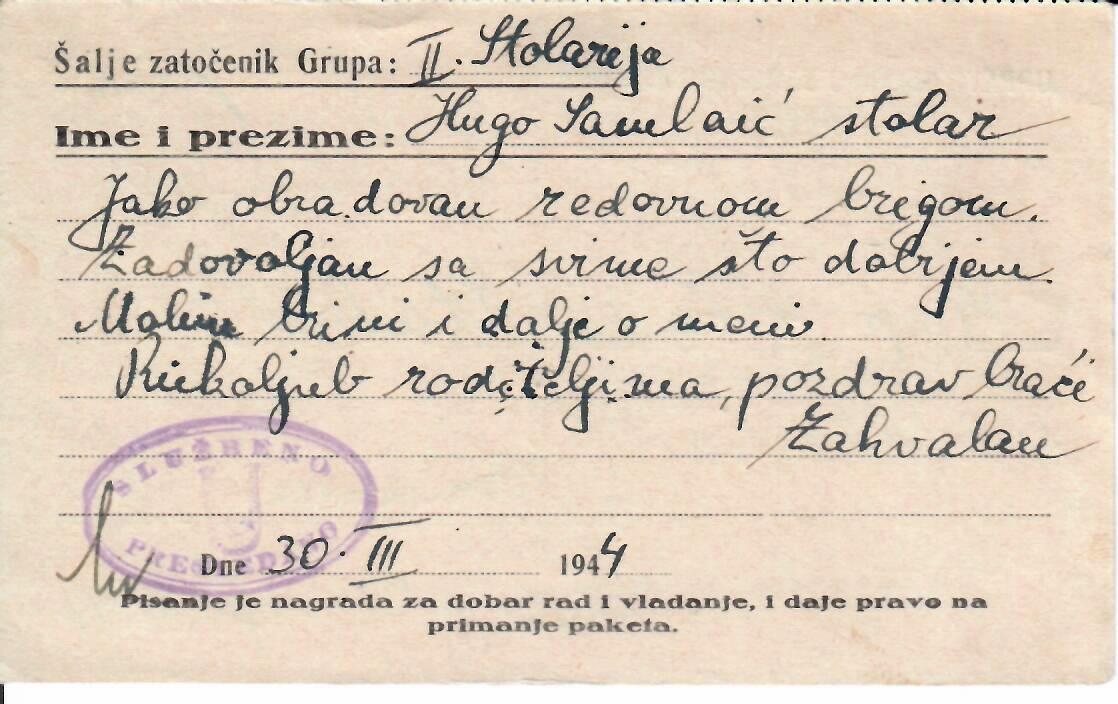 Šalje zatočenik Grupa: II. Stolarija
Ime i prezime: Hugo Samlaić stolar
Jako obradovan redovnom brigom.
Zadovoljan sa svime što dobijem
Molim brini i dalje o meni
Rukoljub roditeljima, pozdrav braći
Zahvalan
SLUŽBENO
PREGLEDANO
Dne 30. III 1944
Pisanje je nagrada za dobar rad i vladanje, i daje pravo na
primanje paketa.